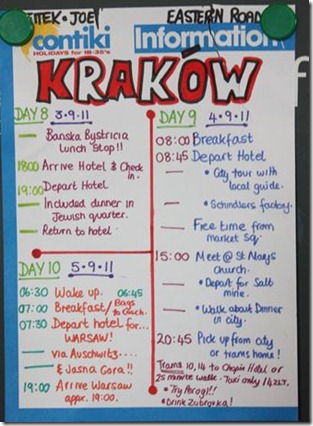 JOE
EASTERN ROAD
contiki
HOLIDAYS for 18-35's
Information
KRAKÓW
DAY 8 3.9.11
Banska Bystricia
Lunch Stop!!
1800 Arrive Hotel & Check
in.
19:00 Depart Hotel
Included dinner in
Jewish quarter.
Return to hotel
DAY 9 4.9.11
08:00 Breakfast
08:45 Depart Hotel
• City tour with
local guide.
• Schindlers factory.
Free time from
market Sq.
15:00 Meet @ St Marys
church.
• Depart for Salt
mine.
• Walk about Dinner
in city.
20:45 Pick up from city
or trams home!
Trams 10, 14 to Chopin Hotel or
25 minute walk. Taxi only
• Try Perogi!!
• Drink Zubrovka!
DAY 10 5.9.11
06:30 Wake up. 06:45
07:00 Breakfast/ Bags
to coach.
07:30 Depart hotel for...
WARSAW!
via Auschwitz....
& Jasna Gora!!
19:00 Arrive Warsaw
appr. 19:00.